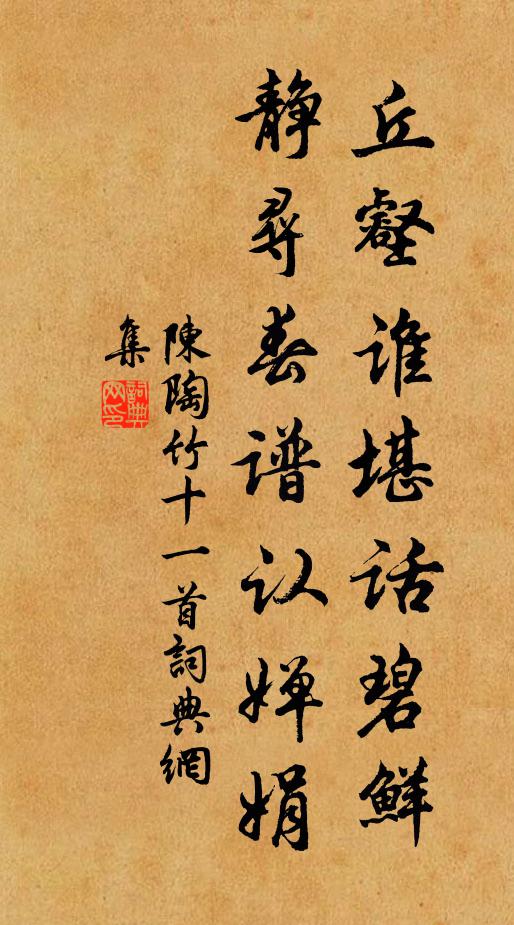 丘壑谁堪话碧鲜
静寻春谱认婵娟
陳陶竹十一首詞典網
集
詞典
网印